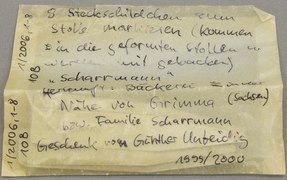 8 Steckschildchen zum
Stolle markieren (kommen
in die geformten Stollen u.
werden mit gebacken)
"Scharrmann"
Bäckerei
Nähe von Grimma (Sachsen)
Familie Scharrmann
Geschenk von Günther Unteidig
1999/2000
1/2006,1-8
10B
1/2006,1-8
10B